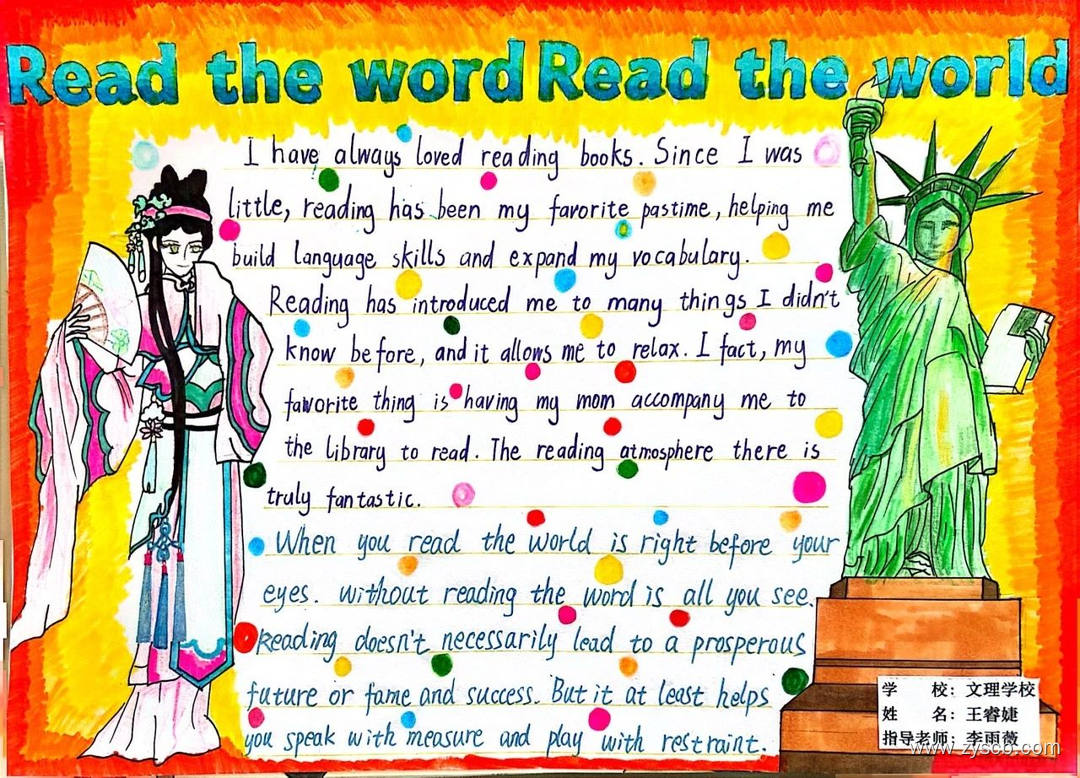 Read the word Read the world
I have always loved reading books. Since I was
little, reading has been my favorite pastime, helping me
build language skills and expand my vocabulary.
Reading has introduced me to many things I didn't
know before, and it allows me to relax. I fact, my
faworite thing is having my mom accompany me to
the library to read. The reading atmosphere there is
truly fantastic.
When you read the world is right before your
eyes. without reading the word is all you see.
Reading doesn't necessarily lead to a prosperous
future or fame and success. But it at least helps
you speak with measure and play with restraint.
学 校：文理学校
姓 名：王睿婕
指导老师：李雨薇
www.zyscb.com